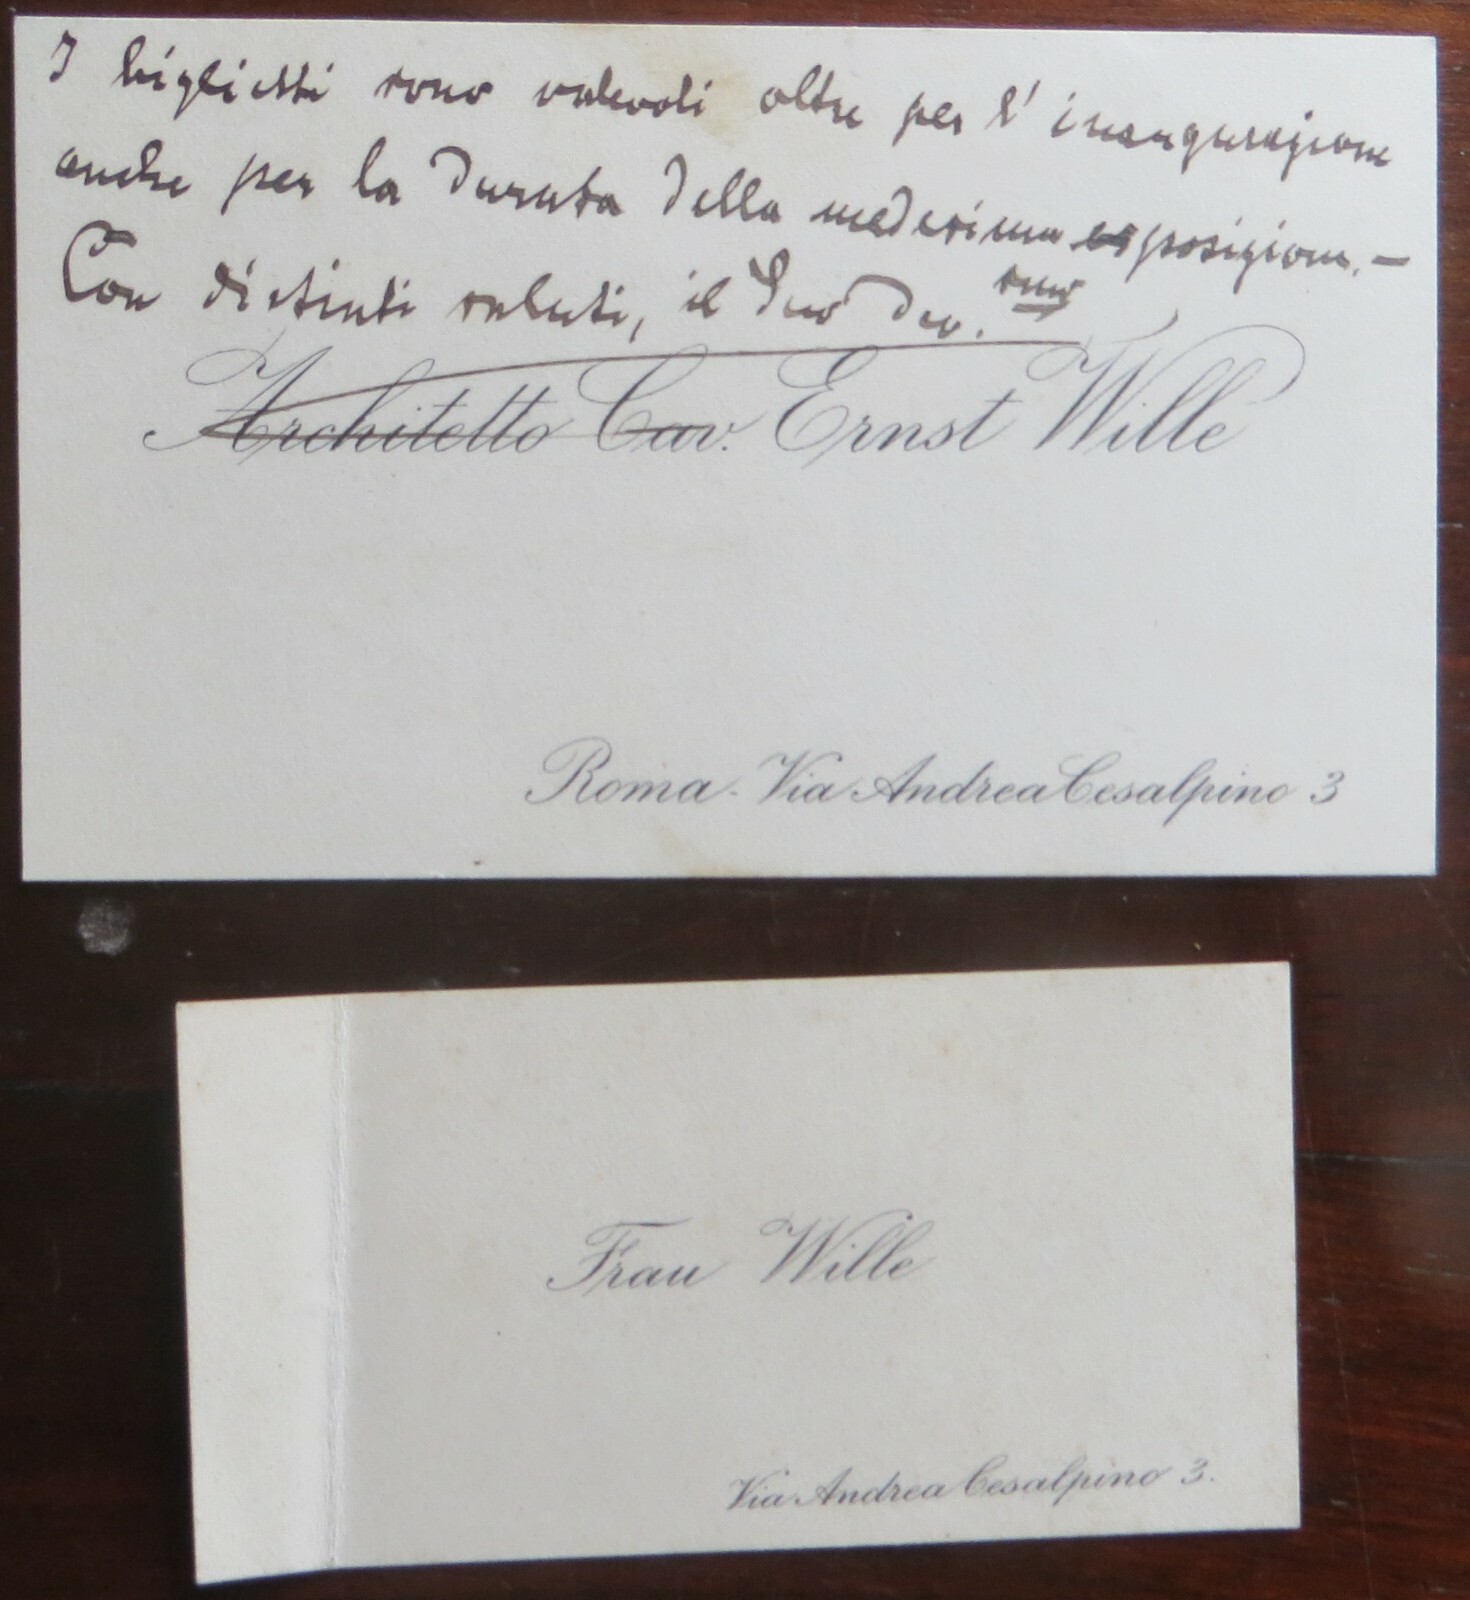 I biglietti sono valevoli oltre per l'inaugurazione
anche per la durata della medesima esposizione. —
Con distinti saluti, il Suo dev. smo
Architetto Cav. Ernst Wille
Roma - Via Andrea Cesalpino 3
Frau Wille
Via Andrea Cesalpino 3.